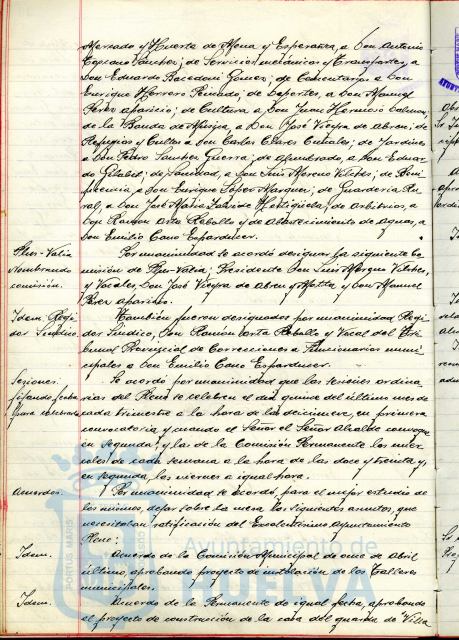 Mercado y Huerta de Mena y Esperanza, a Don Antonio
Toscano Sanchez; de Servicios mecánicos y Transportes, a
Don Eduardo Gomez; de Cementerios a Don
Enrique Herrero Peinado; de Deportes, a Don Manuel
Perez Aparicio; de Cultura a Don Juan Hermoso
de la Banda de Musica, a Don José Vieyra de Abreu; de
Refugios y Cultos a Don Carlos; de Jardines
a Don Pedro Sanchez Guerra; de alumbrado, a Don Eduar-
do; de Sanidad, a Don Luis Moreno; de Bene-
ficencia, a Don Enrique Lopez Marquez; de Guarderia Ru-
ral, a Don José Maria; de Arbitrios, a
Don Ramon Orta Rebollo y de Abastecimiento de Aguas, a
Don Emilio Cano
Plus-Valia
Nombrando
comisión.
Por unanimidad se acordó designar la siguiente Co-
misión de Plus-Valia; Presidente Don Luis
y Vocales, Don José Vieyra de Abreu y Motta y Don Manuel
Perez Aparicio.
Idem. Regi-
dor Sindico.
También fueron designados por unanimidad, Regi-
dor Sindico, Don Ramón Orta Rebollo y Vocal del Tri-
bunal Provincial de Correcciones a Funcionarios muni-
cipales a Don Emilio Cano
Sesiones.
fijando fecha
para celebrarlas
Se acordó por unanimidad que las sesiones ordina-
rias del Pleno se celebren el dia quince del último mes de
cada trimestre a la hora de las diecinueve, en primera
convocatoria y cuando el Señor el Señor Alcalde convoque
en segunda; y las de la Comisión Permanente los miér-
coles de cada semana a la hora de las doce y treinta y,
en segunda, los viernes a igual hora.
Acuerdos.
Por unanimidad se acordó, para el mejor estudio de
los mismos, dejar sobre la mesa los siguientes asuntos, que
necesitaban ratificación del Excelentisimo Ayuntamiento
Pleno:
Idem.
Acuerdo de la Comisión Municipal de once de Abril
último, aprobando proyecto de instalación de los Talleres
municipales.
Idem.
Acuerdo de la Permanente de igual fecha, aprobando
el proyecto de construcción de la casa del guarda de Villa
Ayuntamiento de
HUELVA